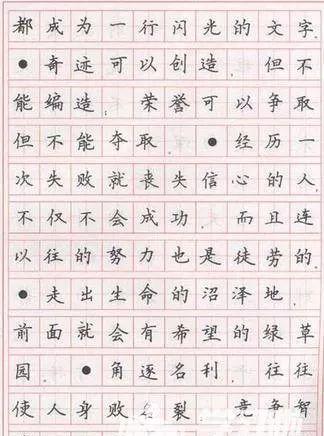 都成为一行闪光的文字
●奇迹可以创造，但不
能编造；荣誉可以争取
但不能夺取。●经历一
次失败就丧失信心的人
不仅不会成功，而且连
以往的努力也是徒劳的
●走出生命的沼泽地，
前面就会有希望的绿草
园。●角逐名利，往往
使人身败名裂；竞争智